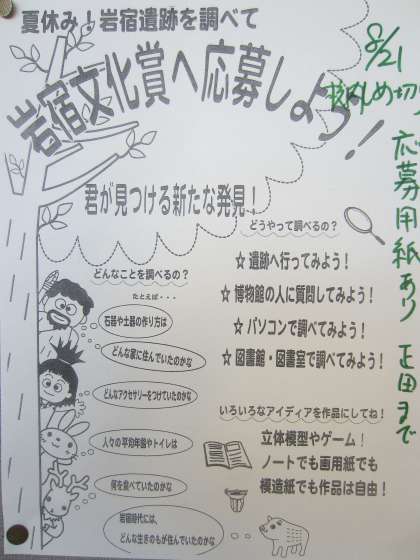 夏休み!岩宿遺跡を調べて
岩宿文化賞へ応募しよう!
8/21
〆め切り
応募用紙あり 正田まで
君が見つける新たな発見!
どうやって調べるの?
☆遺跡へ行ってみよう!
☆博物館の人に質問してみよう!
☆パソコンで調べてみよう!
☆図書館・図書室で調べてみよう!
どんなことを調べるの?
たとえば・・・
石器や土器の作り方は
どんな家に住んでいたのかな
どんなアクセサリーをつけていたのかな
人々の平均年齢やトイレは
何を食べていたのかな
岩宿時代には、
どんな生きものが住んでいたのかな
いろいろなアイディアを作品にしてね!
立体模型やゲーム!
ノートでも画用紙でも
模造紙でも作品は自由!